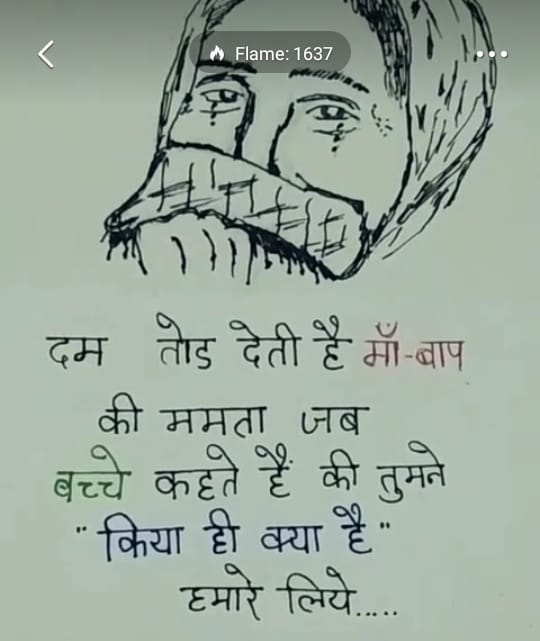 Flame: 1637
दम तोड देती है माँ-बाप
की ममता जब
बच्चे कहते हैं की तुमने
"किया ही क्या है"
हमारे लिये.....